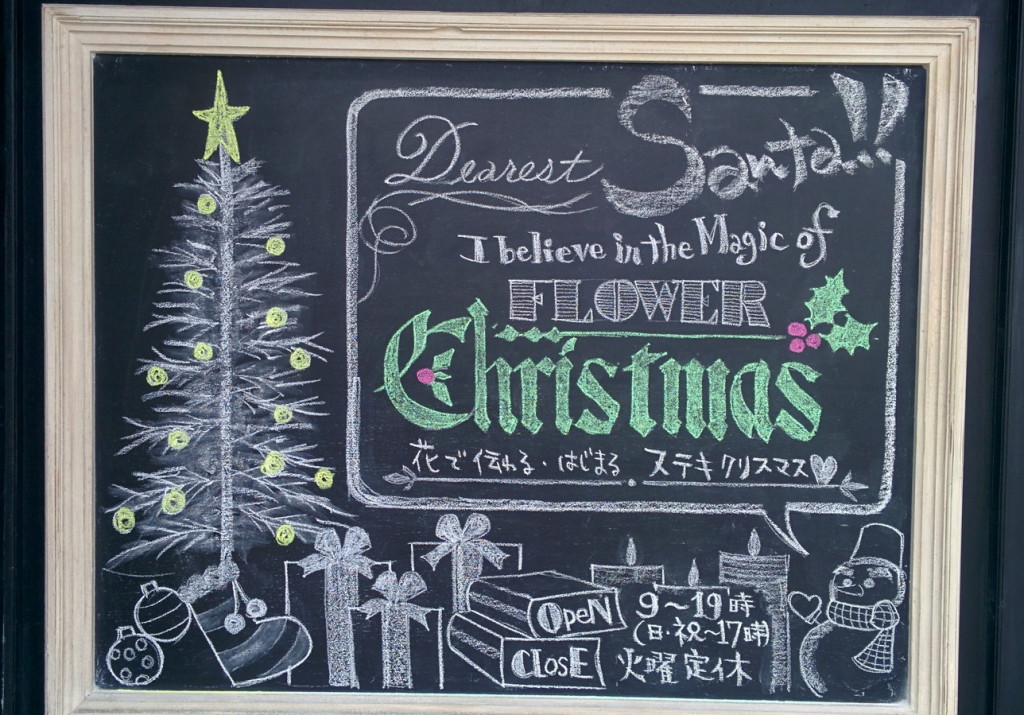 Dearest Santa!!
I believe in the Magic of
FLOWER
Christmas
花で伝わる・はじまる ステキクリスマス
OPeN 9～19時
(日・祝～17時)
CLOSE 火曜定休